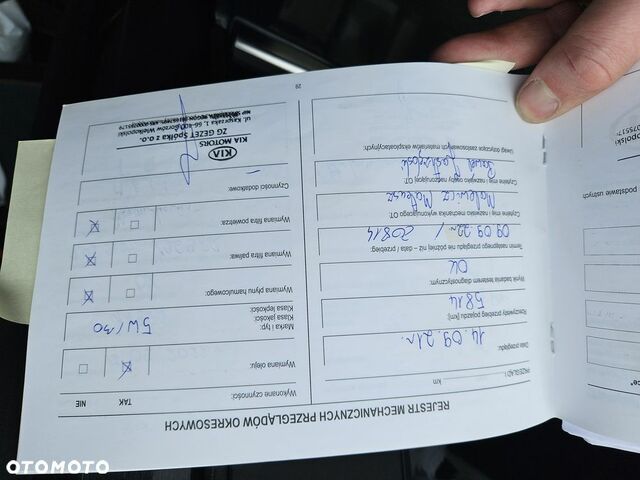 REJESTR MECHANICZNYCH PRZEGLĄDÓW OKRESOWYCH
PRZEGLĄD I
km
Data przeglądu:
14.09.21r.
Rzeczywisty przebieg pojazdu [km]
5814
Wynik badania testerem diagnostycznym:
OK
Termin następnego przeglądu nie później niż – data / przebieg:
09.09.22r / 20814
Czytelne imię i nazwisko mechanika wykonującego OT:
Malewicz Mateusz
Czytelne imię i nazwisko osoby nadzorującej OT:
Paweł
Uwagi dotyczące zastosowanych materiałów eksploatacyjnych:
Wykonane czynności:
TAK
NIE
Wymiana oleju:
Marka i typ:
Klasa jakości:
Klasa lepkości:
5W/30
Wymiana płynu hamulcowego:
Wymiana filtra paliwa:
Wymiana filtra powietrza:
Czynności dodatkowe:
KIA
KIA MOTORS
ZG GEZET Spółka z o.o.
29
OTOMOTO